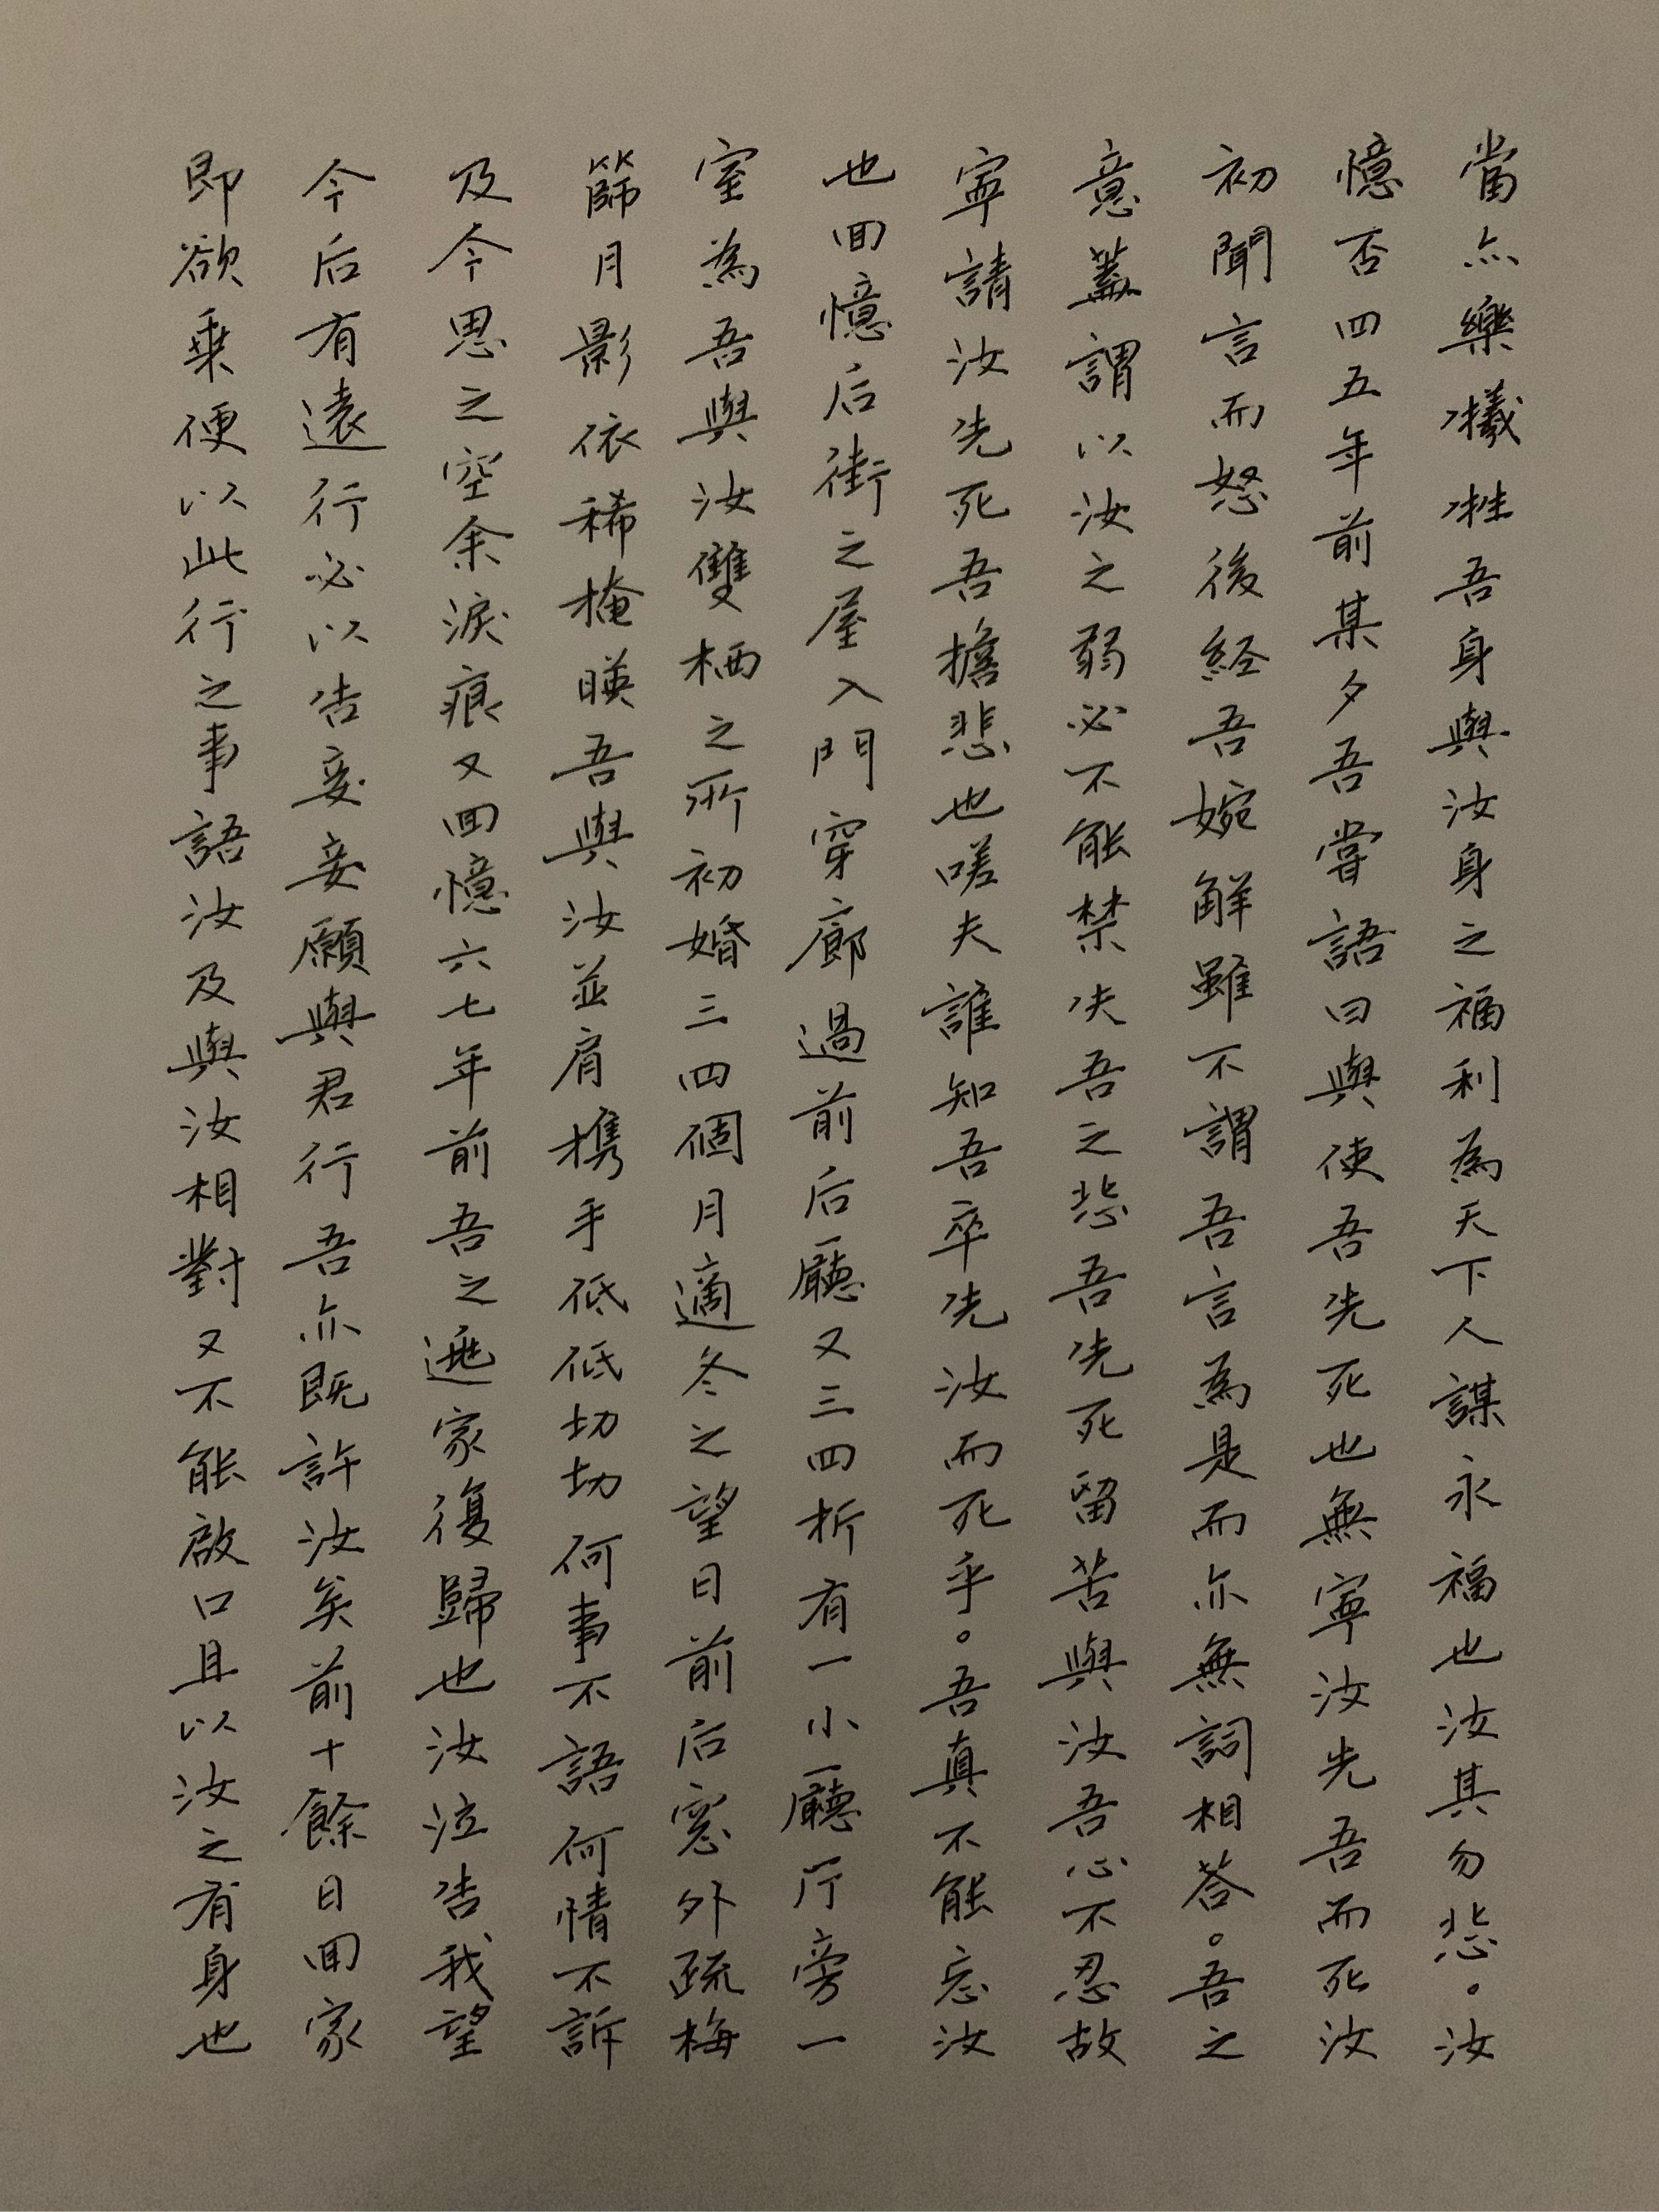 當亦樂犧牲吾身與汝身之福利為天下人謀永福也汝其勿悲。汝
憶否四五年前某夕吾嘗語曰與使吾先死也無寧汝先吾而死汝
初聞言而怒後経吾婉解雖不謂吾言為是而亦無詞相答。吾之
意蓋謂以汝之弱必不能禁失吾之悲吾先死留苦與汝吾心不忍故
寧請汝先死吾擔悲也嗟夫誰知吾卒先汝而死乎。吾真不能忘汝
也回憶后街之屋入門穿廊過前后廳又三四折有一小廳厅旁一
室為吾與汝雙栖之所初婚三四個月適冬之望日前后窓外疏梅
篩月影依稀掩映吾與汝並肩携手低低切切何事不語何情不訴
及今思之空余淚痕又回憶六七年前吾之逃家復歸也汝泣告我望
今后有遠行必以告妾妾願與君行吾亦既許汝矣前十餘日回家
即欲乗便以此行之事語汝及與汝相對又不能啟口且以汝之有身也